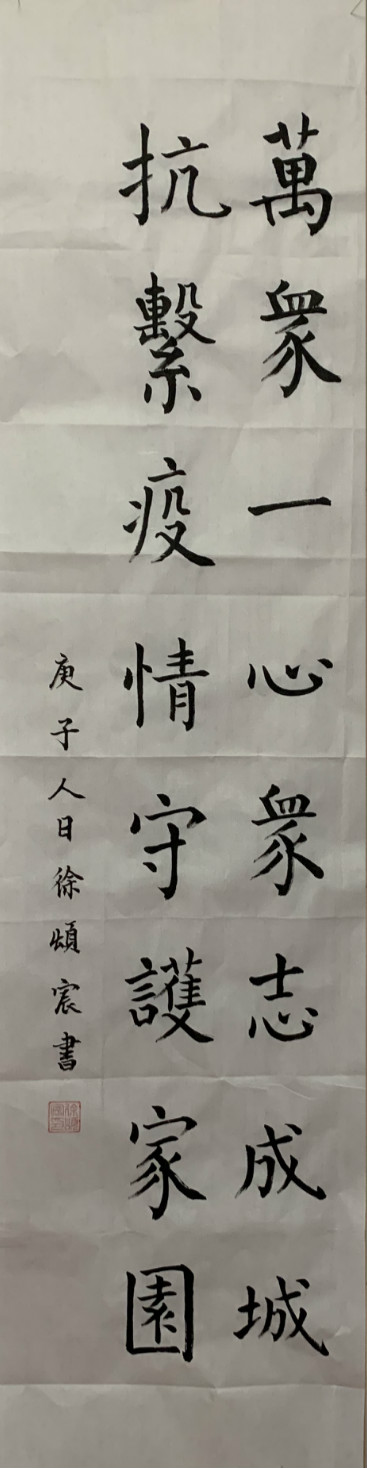 萬眾一心眾志成城
抗繫疫情守護家園
庚子人日徐頌宸書